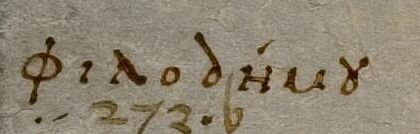 φιλοδήμȣ
273.b